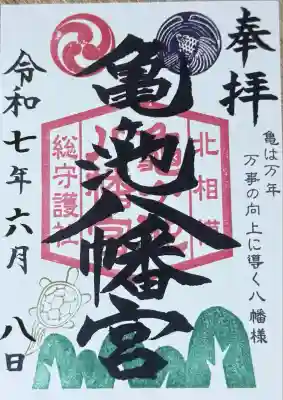 奉拝
亀は万年
万事の向上に導く八幡様
北相模
亀ヶ池八幡宮
総守護社
亀池八幡宮
令和七年六月八日